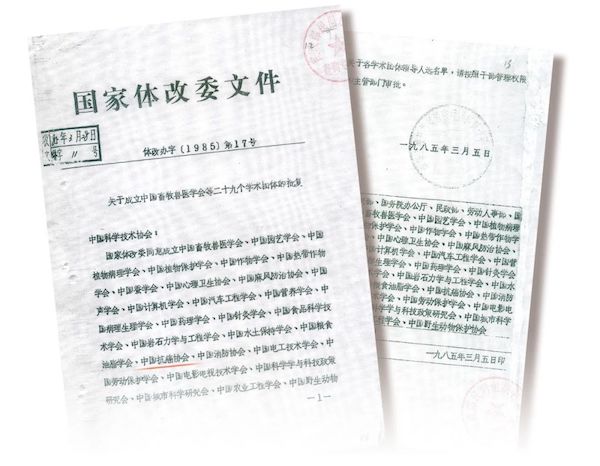 12
国家体改委文件
体改办字〔1985〕第17号
关于成立中国畜牧兽医学会等二十九个学术团体的批复
中国科学技术协会：
国家体改委同意成立中国畜牧兽医学会、中国园艺学会、中国
植物病理学会、中国植物保护学会、中国作物学会、中国热带作物
学会、中国蚕学会、中国心理卫生协会、中国麻风防治协会、中国
声学会、中国计算机学会、中国汽车工程学会、中国营养学会、中
国病理生理学会、中国药理学会、中国针灸学会、中国食品科学技
术学会、中国岩石力学与工程学会、中国水土保持学会、中国粮食
油脂学会、中国抗癌协会、中国消防协会、中国电工技术学会、中
国劳动保护学会、中国电影电视技术学会、中国科学学与科技政策
研究会、中国城市科学研究会、中国农业工程学会、中国野生动物
—1—
13
关于各学术团体领导人选名单，请按照干部管理权限
主管部门审批。
一九八五年三月五日
国务院办公厅、民政部、劳动人事部、国
畜牧兽医学会、中国园艺学会、中国植物病理
学会、中国作物学会、中国热带作物学
中国心理卫生协会、中国麻风防治协会、
学会、中国汽车工程学会、中国营
会、中国药理学会、中国针灸学会
中国岩石力学与工程学会、中国水
粮食油脂学会、中国抗癌协会、中国消防
会、中国劳动保护学会、中国电影电
科学学与科技政策研究会、中国城市科
程学会、中国野生动物保护协会
一九八五年三月五日印